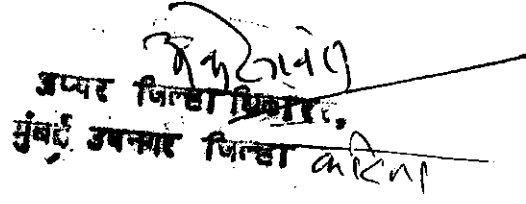 अप्पर जिल्हाधिकारी,
मुंबई उपनगर जिल्हा करिता